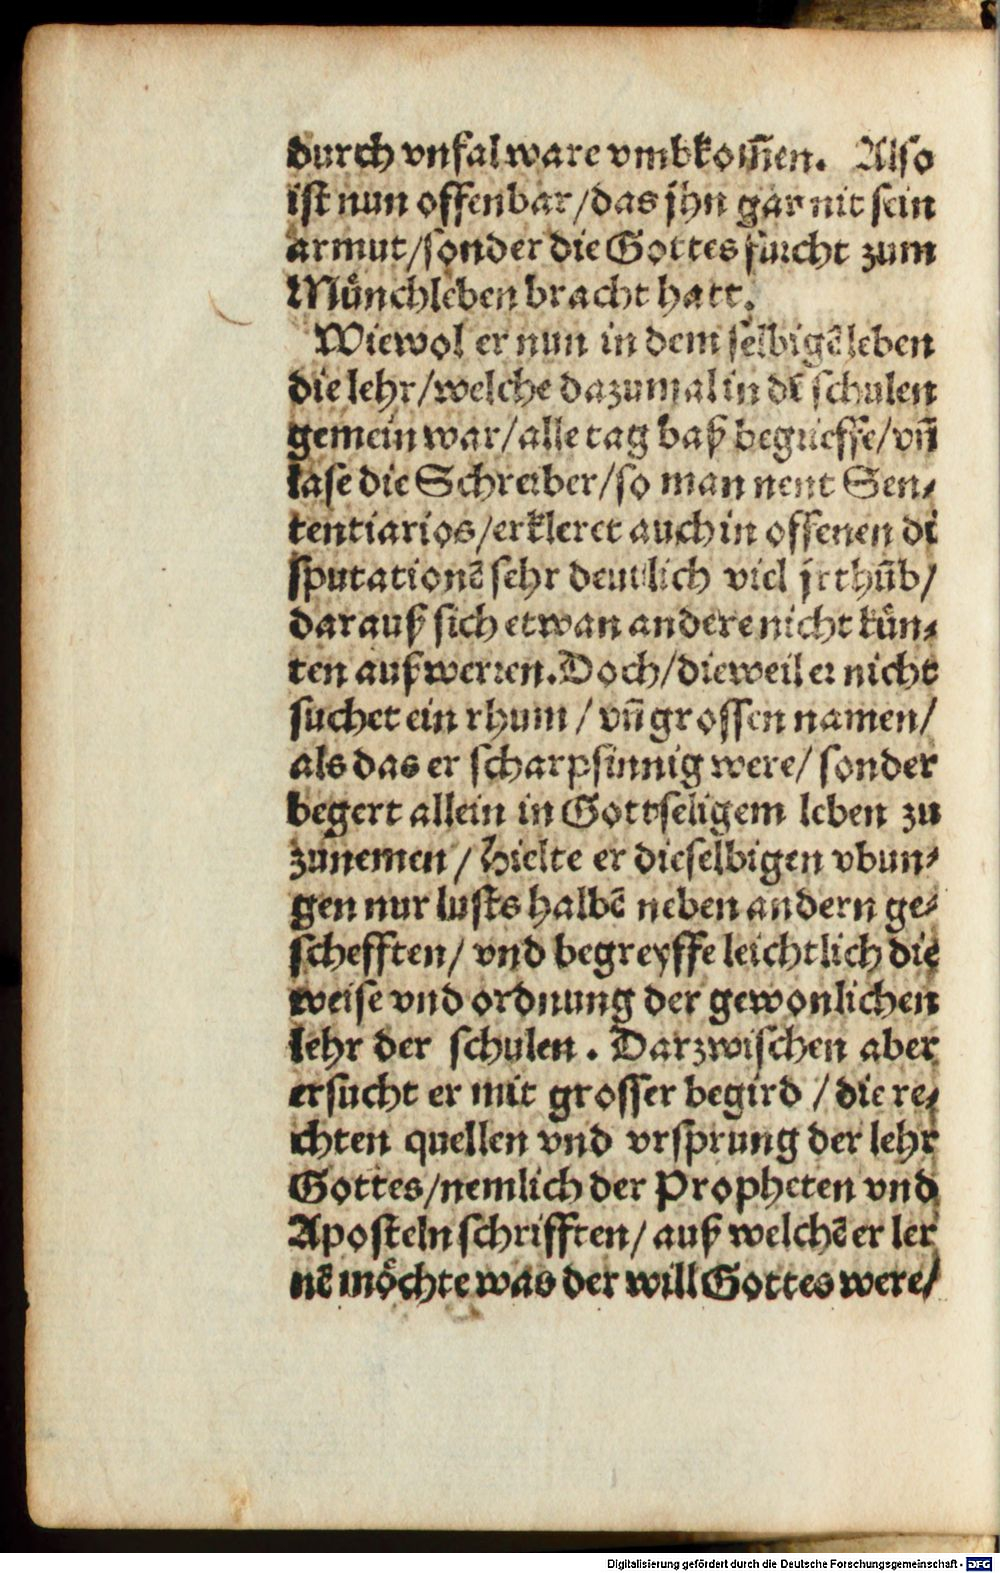 durch vnfal ware vmbkom̃en. Also
ist nun offenbar/das jhn gar nit sein
armut/sonder die Gottes fürcht zum
Münchleben bracht hatt.
Wiewol er nun in dem selbigẽ leben
die lehr/welche dazumal in dẽ schulen
gemein war/alle tag baß begrieffe/vñ
lase die Schreiber/so man nent Sen⸗
tentiarios/erkleret auch in offenen di
sputationẽ sehr deutlich viel jrthũb/
darauß sich etwan andere nicht kün⸗
ten außwerren. Doch/dieweil er nicht
suchet ein rhum/vñ grossen namen/
als das er scharpsinnig were/sonder
begert allein in Gottseligem leben zu
zunemen/Hielte er dieselbigen vbun⸗
gen nur lusts halbẽ neben andern ge⸗
schefften/vnd begreyffe leichtlich die
weise vnd ordnung der gewonlichen
lehr der schulen. Darzwischen aber
ersucht er mit grosser begird/die re⸗
chten quellen vnd vrsprung der lehr
Gottes/nemlich der Propheten vnd
Aposteln schrifften/auß welchẽ er ler
nẽ möchte was der will Gottes were/
Digitalisierung gefördert durch die Deutsche Forschungsgemeinschaft - DFG